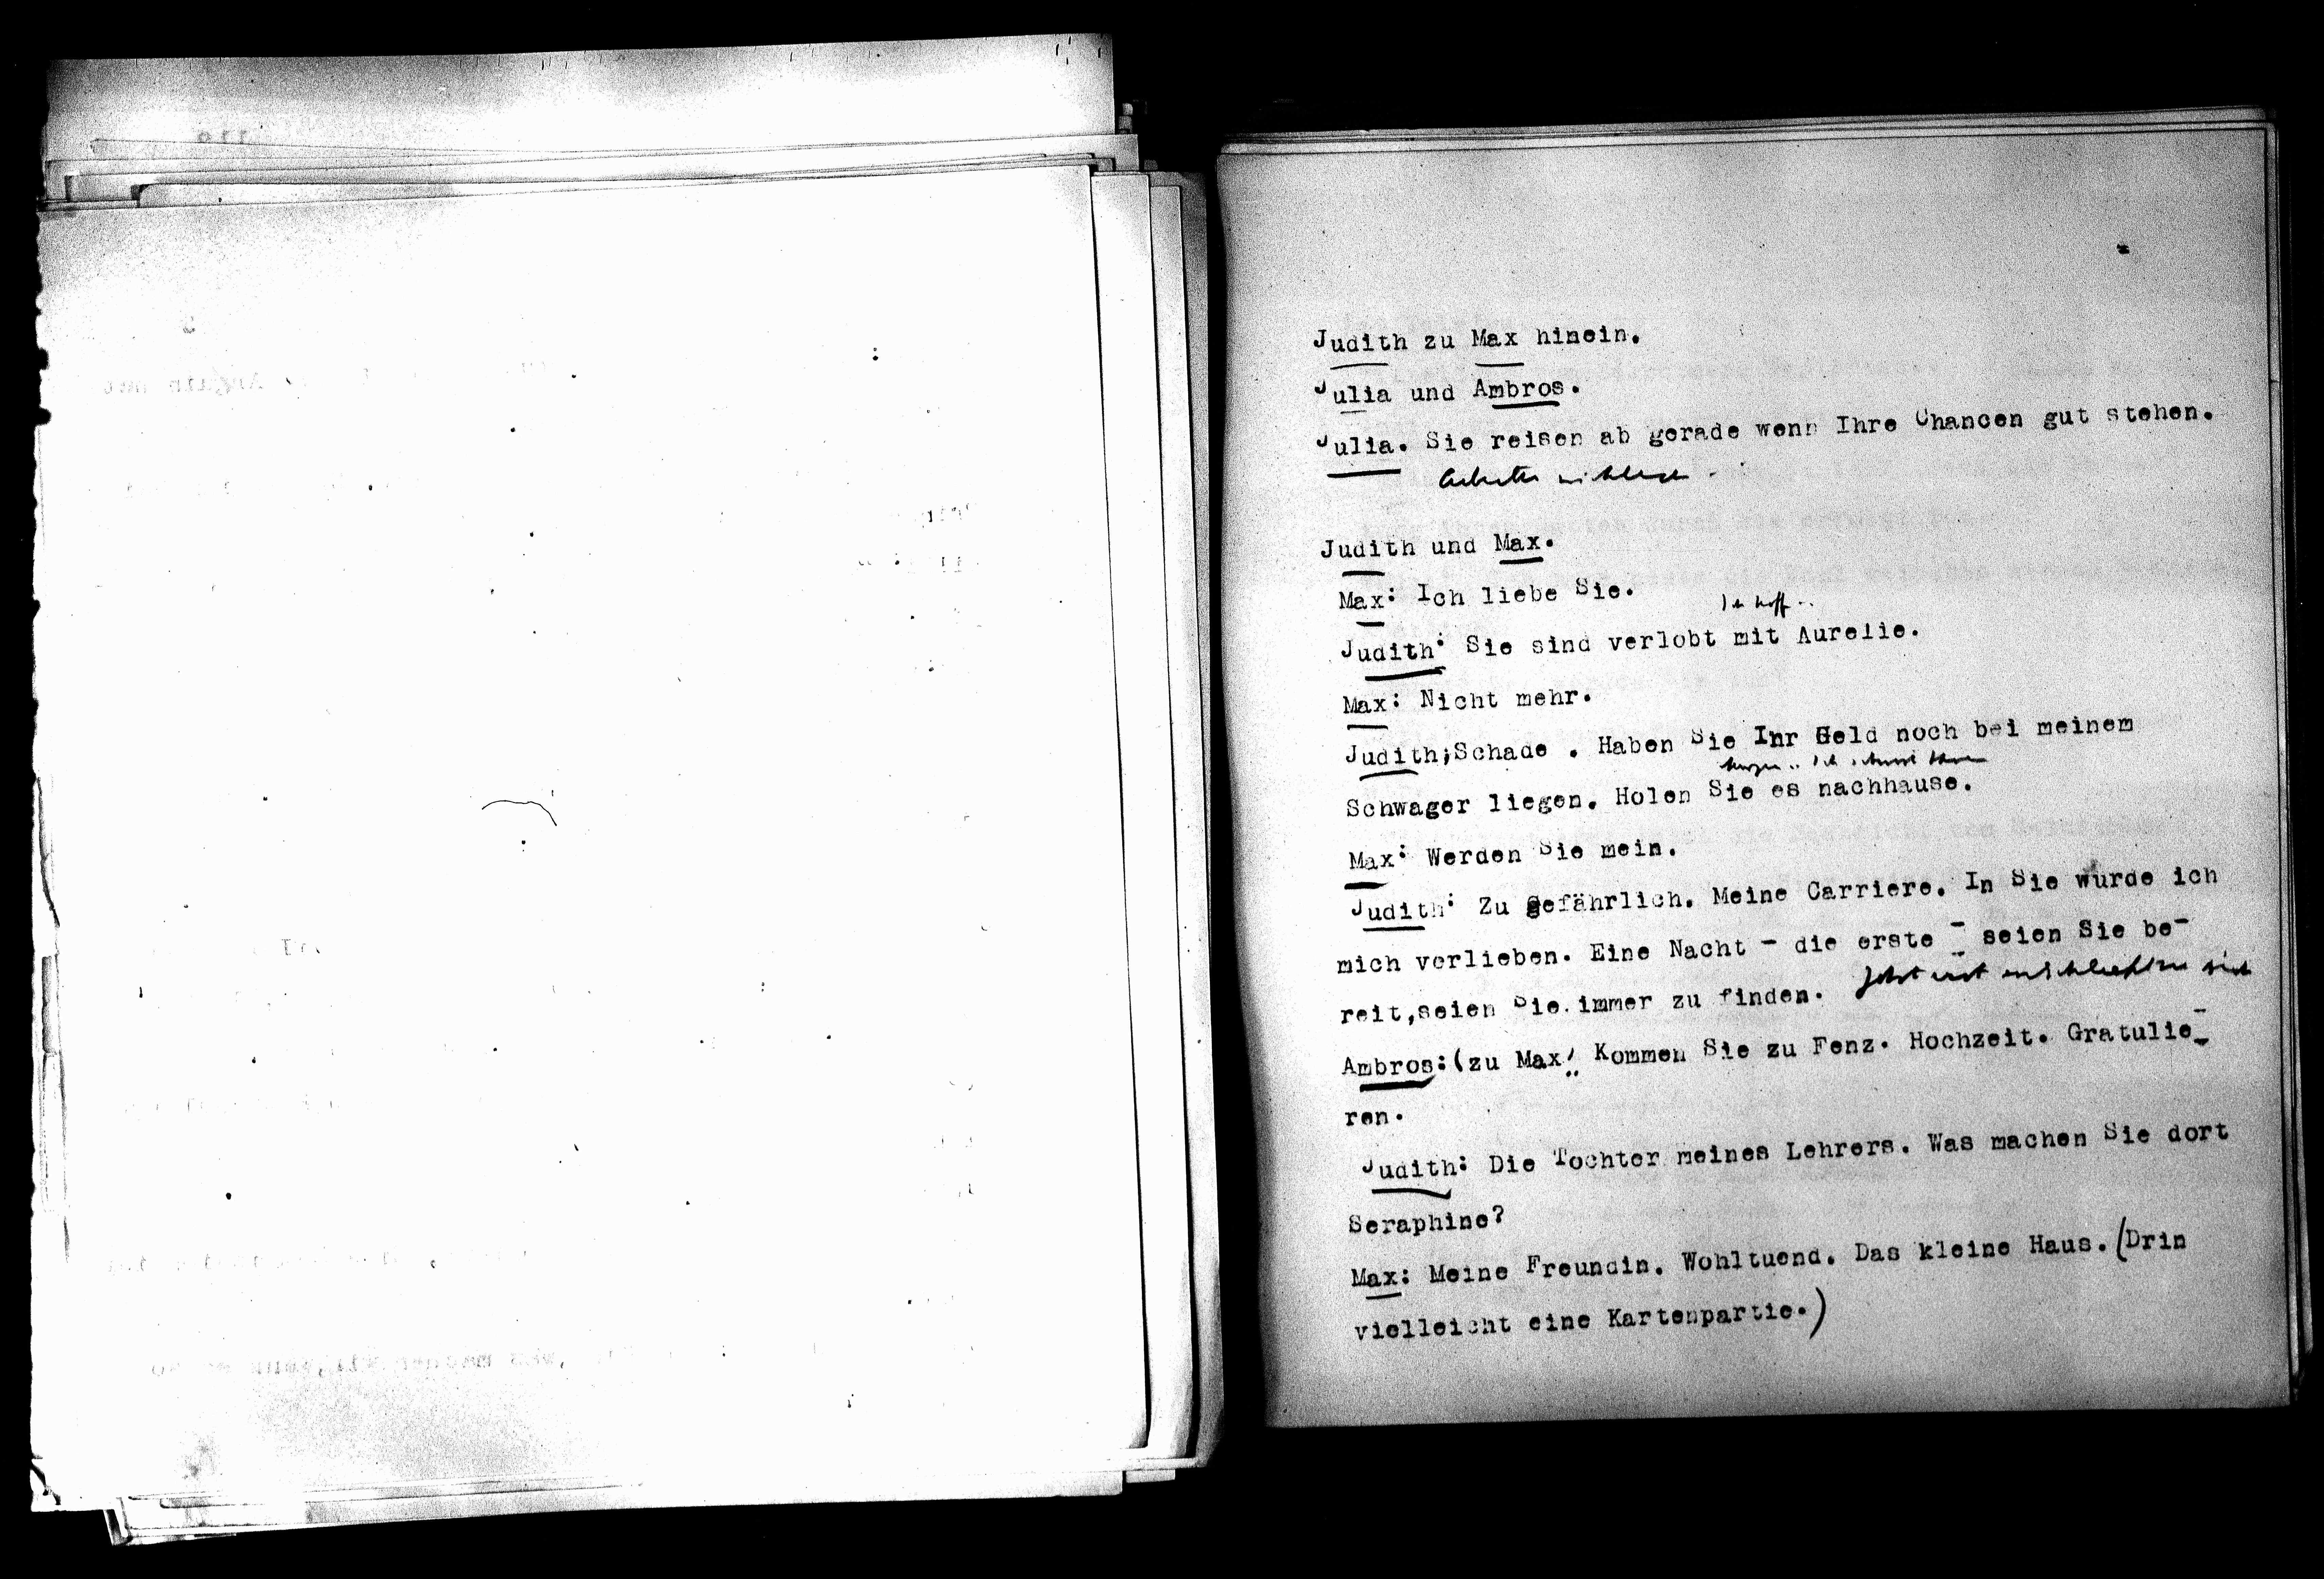 Judith zu Max hinein.
Julia und Ambros.
Julia. Sie reisen ab gerade wenn Ihre Chancen gut stehen.
Judith und Max.
Max: Ich liebe Sie.
Judith: Sie sind verlobt mit Aurelie.
Max: Nicht mehr.
Judith;Schade . Haben Sie Ihr Geld noch bei meinem
Schwager liegen. Holen Sie es nachhause.
Max: Werden Sie mein.
Judith: Zu gefährlich. Meine Carriere. In Sie würde ich
mich verlieben. Eine Nacht - die erste - seien Sie be-
reit,seien Sie immer zu finden. Jetzt erst entschließen sich
Ambros:(zu Max) Kommen Sie zu Fenz. Hochzeit. Gratulie-
ren.
Judith: Die Tochter meines Lehrers. Was machen Sie dort
Seraphine?
Max: Meine Freundin. Wohltuend. Das kleine Haus. (Drin
vielleicht eine Kartenpartie.)